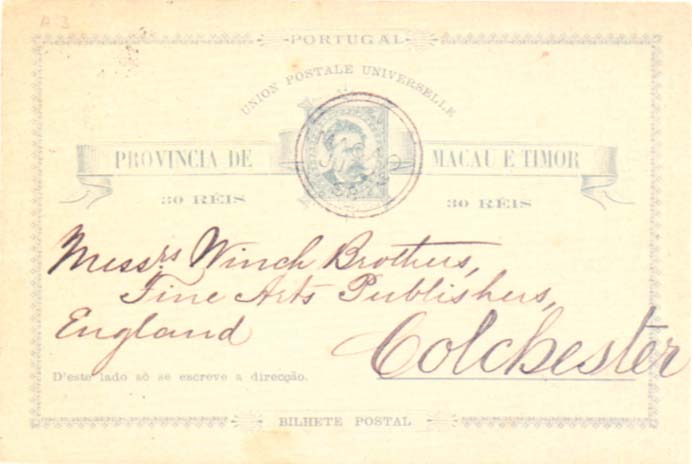 A 3
PORTUGAL
UNION POSTALE UNIVERSELLE
PROVINCIA DE MACAU E TIMOR
30 RÉIS 30 RÉIS
Messrs Winch Brothers,
Fine Arts Publishers,
England Colchester
D'este lado só se escreve a direcção.
BILHETE POSTAL